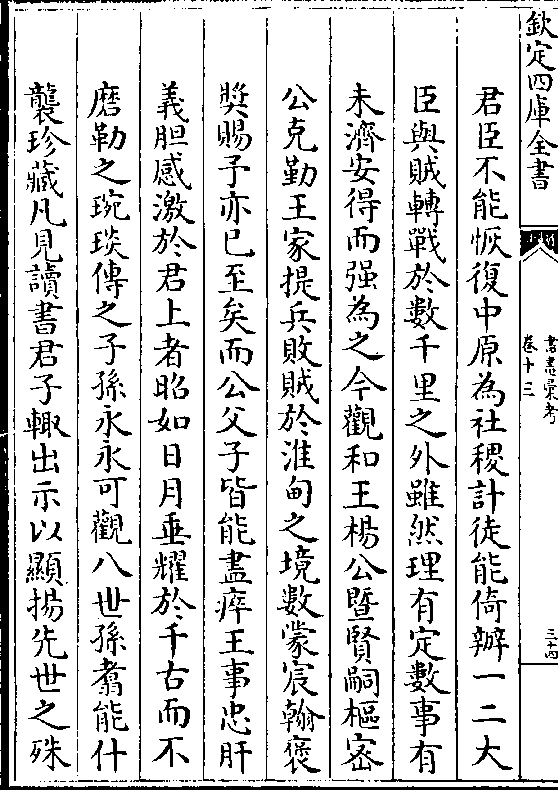 欽定四庫全書
書畫彙考
卷十三
三十四
君臣不能恢復中原為社稷計徒能倚辦一二大
臣與賊轉戰於數千里之外雖然理有定數事有
未濟安得而强為之今觀和王楊公暨賢嗣樞宻
公克勤王家提兵敗賊於淮甸之境數蒙宸翰褒
奬賜予亦已至矣而公父子皆能盡瘁王事忠肝
義胆感激於君上者昭如日月垂耀於千古而不
磨勒之琬琰傳之子孫永永可觀八世孫翥能什
襲珍藏凡見讀書君子輙出示以顯揚先世之殊